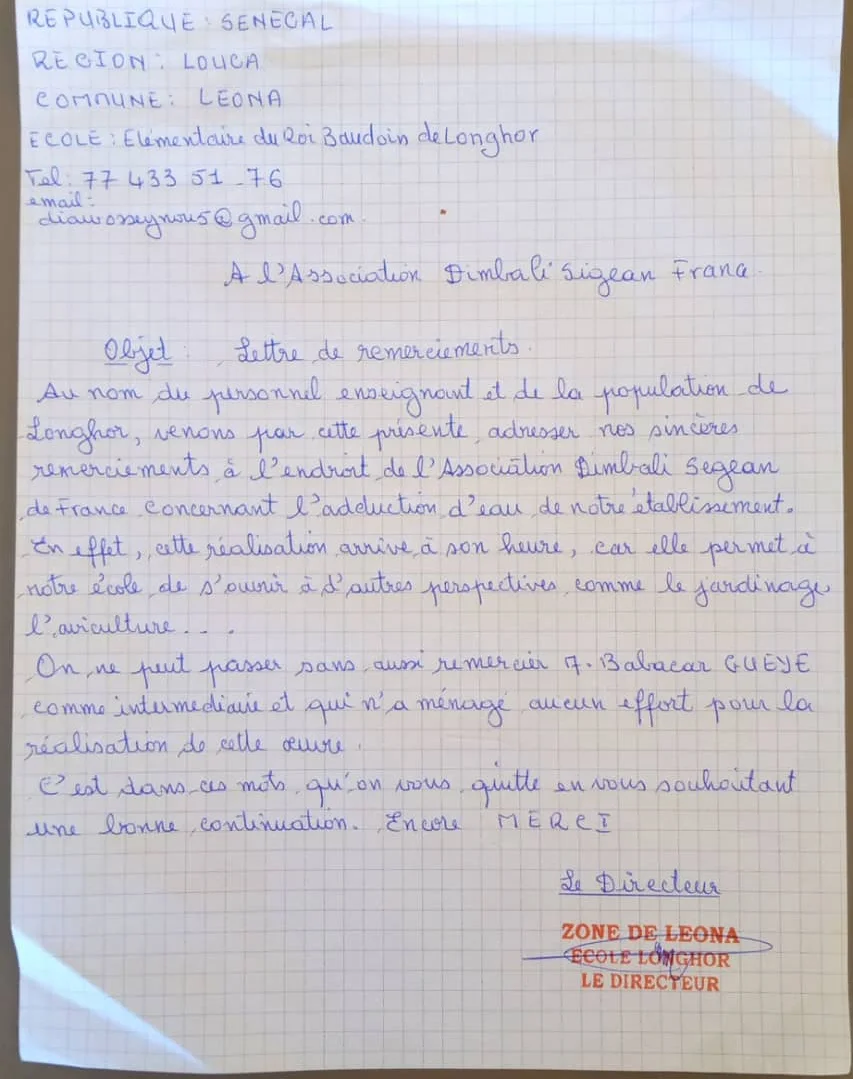 REPUBLIQUE : SENEGAL
REGION : LOUGA
COMMUNE : LEONA
ECOLE : Elémentaire du Roi Baudoin de Longhor
Tel : 77 433 51 _ 76
email :
diawosseynou5@gmail.com.
A l'Association Dimbali Sigean Franc
Objet : Lettre de remerciements.
Au nom du personnel enseignant et de la population de
Longhor, venons par cette présente adresser nos sincères
remerciements à l'endroit de l'Association Dimbali Segean
de France concernant l'adduction d'eau de notre établissement.
En effet, cette réalisation arrive à son heure, car elle permet à
notre école de s'ouvrir à d'autres perspectives comme le jardinage,
l'aviculture...
On ne peut passer sans aussi remercier M. Babacar GUEYE
comme intermediaire et qui n'a ménagé aucun effort pour la
réalisation de cette œuvre.
C'est dans ces mots, qu'on vous quitte en vous souhaitant
une bonne continuation. Encore MERCI
Le Directeur
ZONE DE LEONA
ECOLE LONGHOR
LE DIRECTEUR